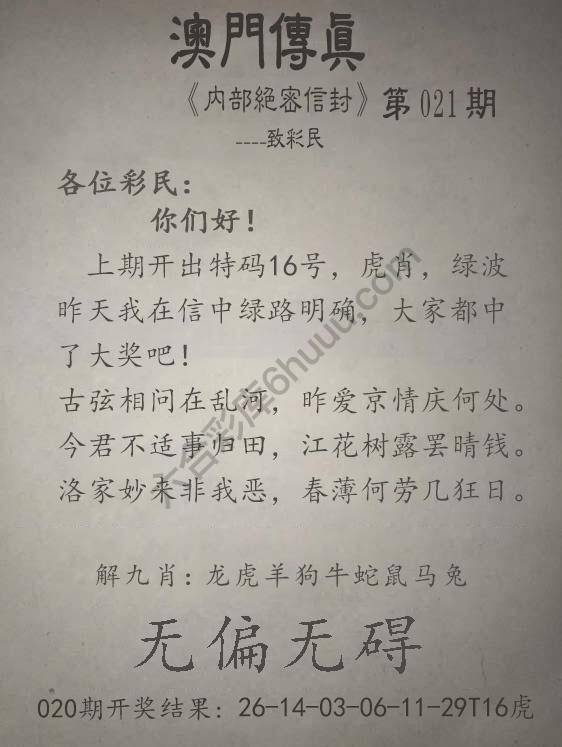 澳門傳真
《内部絕密信封》第021期
----致彩民
各位彩民：
你们好！
上期开出特码16号，虎肖，绿波
昨天我在信中绿路明确，大家都中
了大奖吧！
古弦相问在乱河，昨爱京情庆何处。
今君不适事归田，江花树露罢晴钱。
洛家妙来非我恶，春薄何劳几狂日。
六合彩库6huuu.com
解九肖：龙虎羊狗牛蛇鼠马兔
无偏无碍
020期开奖结果：26-14-03-06-11-29T16虎